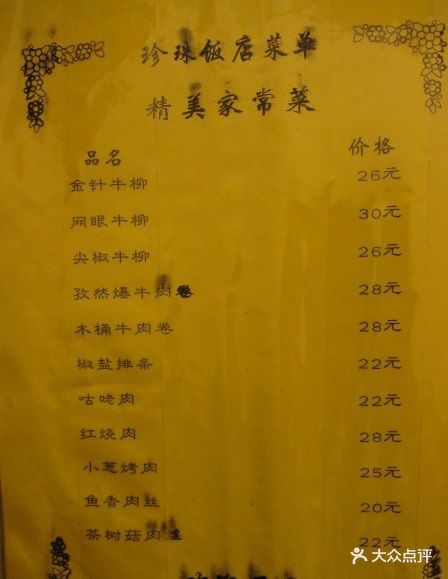 珍珠饭店菜单
精美家常菜
品名 价格
金针牛柳 26元
网眼牛柳 30元
尖椒牛柳 26元
孜然爆牛肉卷 28元
木桶牛肉卷 28元
椒盐排条 22元
咕咾肉 22元
红烧肉 28元
小葱烤肉 25元
鱼香肉丝 20元
茶树菇肉丝 22元
大众点评